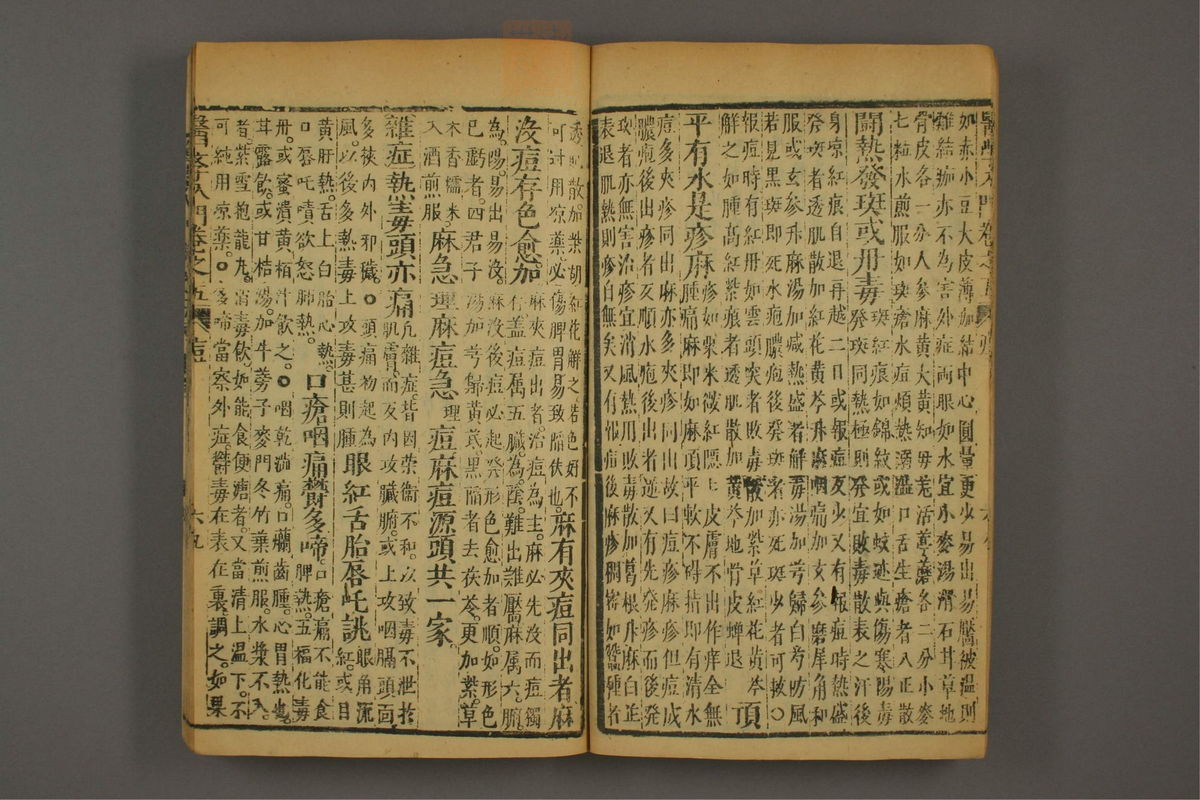 如赤小豆大皮薄如結中心圓暈更少易出易靨被温則
雖結痂亦不為害外症両眼如水宜小麥湯滑石甘草地
骨皮各一分人參麻黄大黄知母羌活各二分小麥
七粒水煎服如瘡水痘煩熱溺澁口舌生瘡者八正散
鬪熱發斑或丹毒
發斑紅痕如錦紋或如蚊迹與傷寒陽毒
發斑同熱極則發宜敗毒散表之汗後
身凉紅痕自退再越二日或報痘反少又有報痘時熱盛
發斑者透肌散加紅花黄芩升麻咽痛加玄參磨犀角和
服或玄參升麻湯加熱盛者解毒湯加芎歸白芍防風
若見黑斑即死水疱膿疱後發斑者亦死斑少者可救○
報痘時有紅丹如雲頭突起者敗毒散加紫草紅花黄芩
解之如腫高紅紫痕者透肌散加黄芩地骨皮蟬退 頂
平有水是疹麻
疹如粟米微紅隱上皮膚不出作痒全無
腫痛麻即如麻頂平軟不碍指即有清水
痘多夾疹同出麻亦多夾疹同出故曰痘疹麻但痘成
膿疱後出疹者反順水疱後出者逆又有先發疹而後發
斑者亦無害治疹宜消風熱用敗毒散加葛根升麻白芷
表退肌熱則疹自無矣又有報痘後麻疹稠密如蠶種者
透肌散加柴胡紅花解之若色好不
可討用凉藥必傷脾胃易致陷伏也
麻有夾痘同出者麻
沒痘存色愈加
麻夾痘出者治痘為主麻必先沒而痘獨
存盖痘属五臟為陰難出難靨麻属六腑
為陽易出易沒麻沒後痘必起發形色愈加者順如形色
巳虧者四君子湯加芎歸黄芪黑陷者去茯苓更加紫草
木香糯米
入酒煎服
麻急理麻痘急理痘麻痘源頭共一家
雜症熱毒頭亦痛
凡雜症皆因榮衛不和以致毒不泄於
肌膚而反内攻臟腑或上攻咽膈頭面
多挾内外邪穢○頭痛初起為
風以後多熱毒上攻毒甚則腫
眼紅舌胎唇吒誂
眼角流
紅或目
黄肝熱舌上白胎心熱
口唇吒嘖欲怒肺熱
口瘡咽痛欝多啼
口瘡痛不能食
脾熱五福化毒
丹或蜜漬黄栢汁飲之○咽乾澁痛口爛齒腫心胃熱也
甘露飲或甘桔湯加牛蒡子麥門冬竹葉煎服水漿不入
者紫雪抱龍丸消毒飲如能食便㿃者又當清上温下不
可純用凉藥○多啼當察外症欝毒在表在裏調之如果
醫學入門卷之五 痘 六九